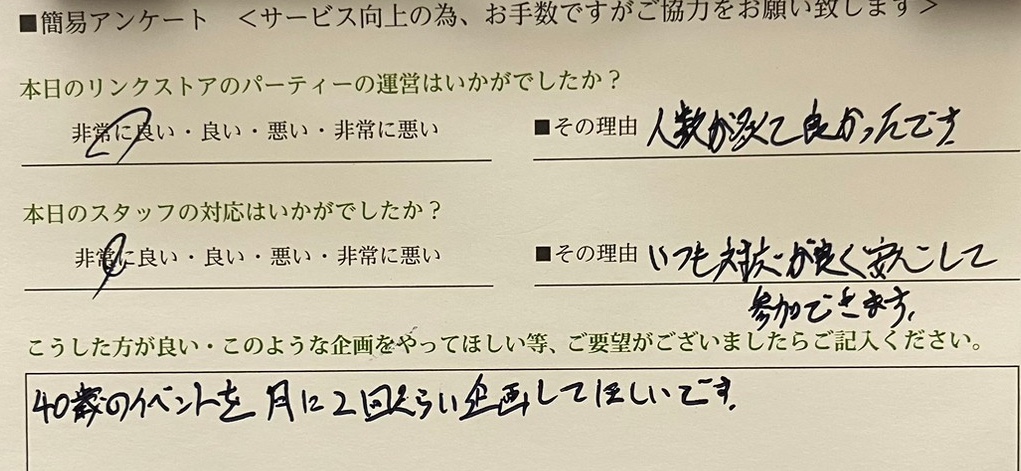 ■簡易アンケート ＜サービス向上の為、お手数ですがご協力をお願い致します＞
本日のリンクストアのパーティーの運営はいかがでしたか？
非常に良い・良い・悪い・非常に悪い ■その理由 人数が多くて良かったんです
本日のスタッフの対応はいかがでしたか？
非常に良い・良い・悪い・非常に悪い ■その理由 いつも対応が良く安心して
参加できます。
こうした方が良い・このような企画をやってほしい等、ご要望がございましたらご記入ください。
40歳のイベントを月に2回くらい企画してほしいです。